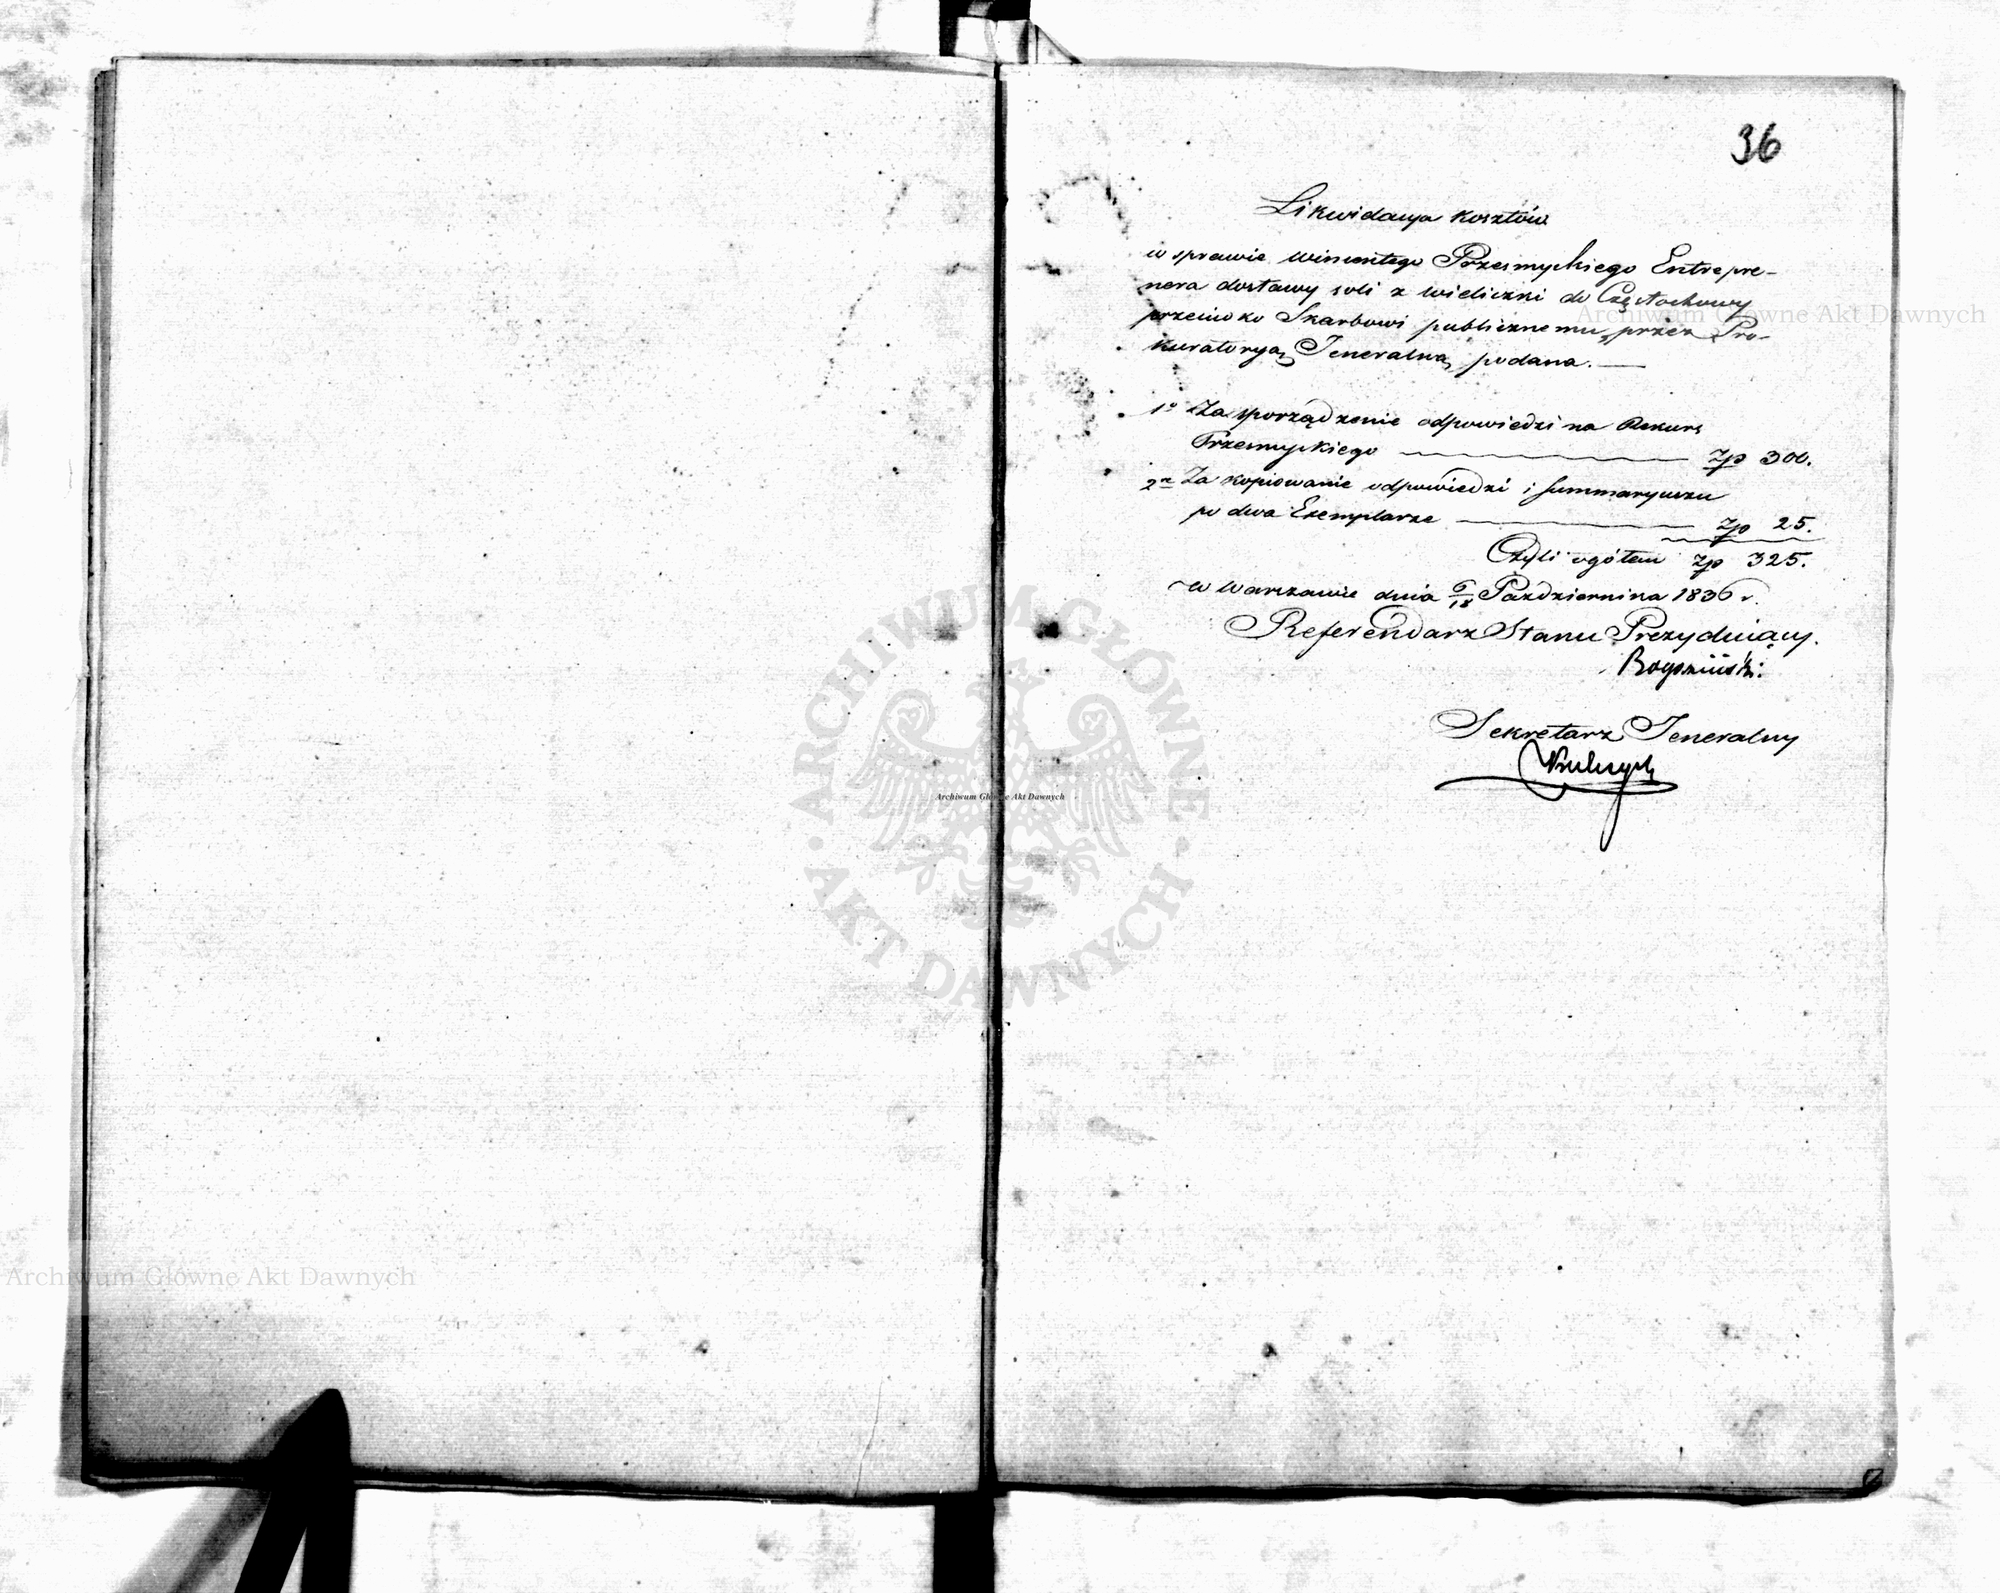 36
Likwidacya kosztów
w sprawie Wincentego Przesmyckiego Entrepre-
nera dostawy soli z Wieliczki do Częstochowy
przeciwko Skarbowi publicznemu, przez Pro-
kuratoryą Jeneralną podana. —
1o Za sporządzenie odpowiedzi na Rekurs
Przesmyckiego — Zp 300.
2e Za kopiowanie odpowiedzi i summaryuszu
po dwa Exemplarze — Zp 25.
Czyli ogółem Zp 325.
w Warszawie dnia 6/18 Października 1836 r.
Referendarz Stanu Prezydujący.
Sekretarz Jeneralny
Archiwum Główne Akt Dawnych
Archiwum Główne Akt Dawnych
Archiwum Główne Akt Dawnych
ARCHIWUM GŁÓWNE AKT DAWNYCH